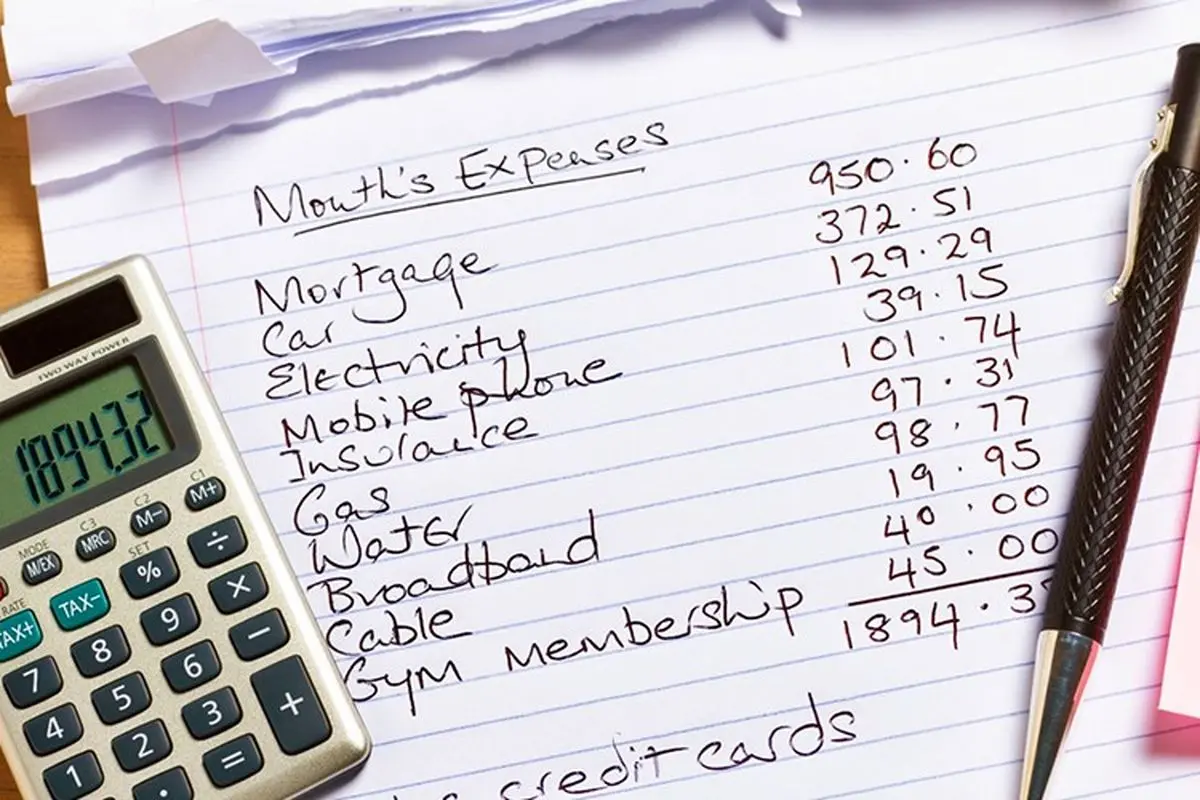 Month's Expenses
Mortgage 950.60
Car 372.51
Electricity 129.29
Mobile phone 39.15
Insurance 101.74
Gas 97.31
Water 98.77
Broadband 19.95
Cable 40.00
Gym membership 45.00
1894.3
credit cards
TWO WAY POWER
1894.32
C1
C2
C3
MODE
M+
M-
MRC
M/EX
SET
RATE
÷
%
TAX-
TAX+
×
9
8
7
-
6
5
4
+
3
2
1
=
.